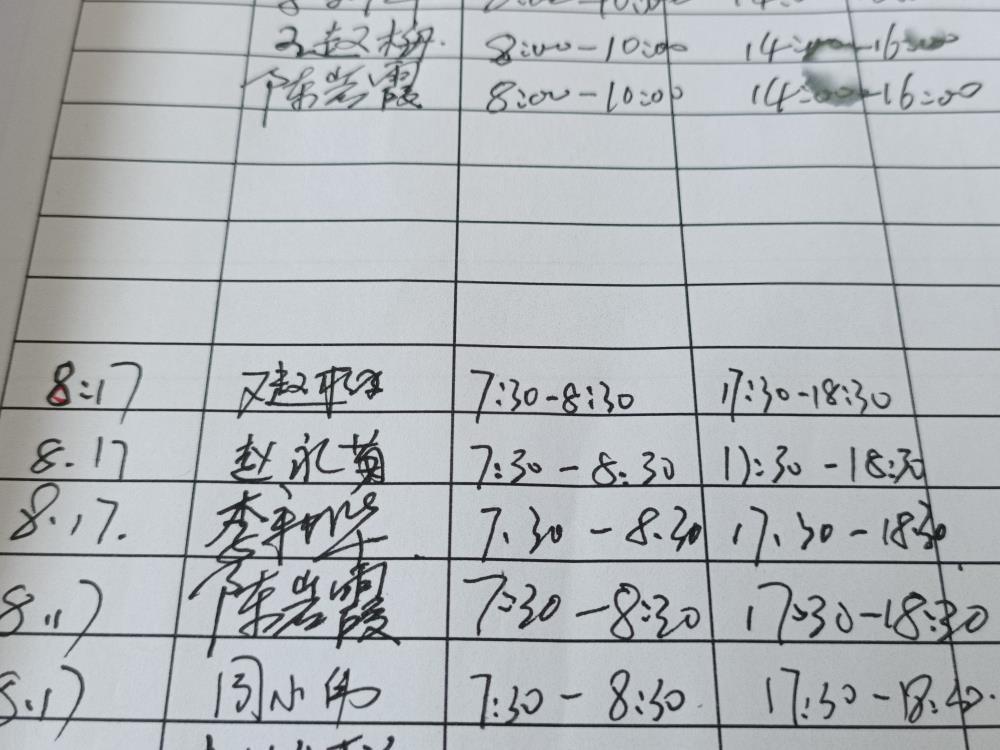 8:00-10:00 14:00-16:00
陈岩霞 8:00-10:00 14:00-16:00
8:17 7:30-8:30 17:30-18:30
8.17 赵永英 7:30-8:30 17:30-18:30
8.17. 李 7.30-8.30 17.30-18:30
8.17 陈岩霞 7:30-8:30 17:30-18:30
8.17 闫小伟 7:30-8:30 17:30-18:30